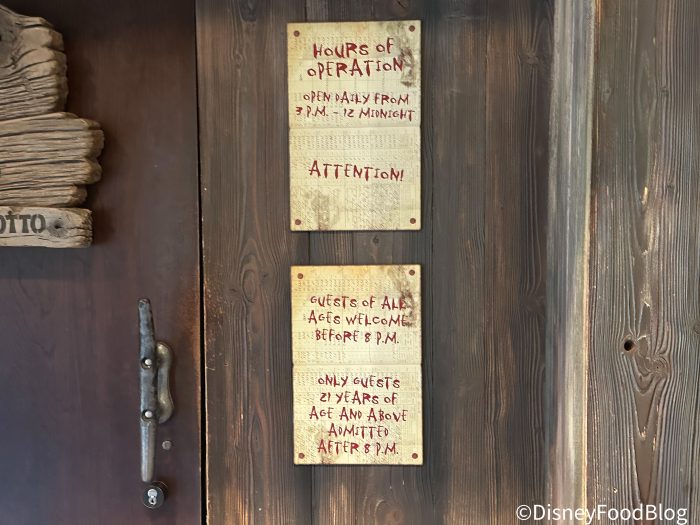 HOURS OF
OPERATION
OPEN DAILY FROM
3 P.M. - 12 MIDNIGHT
ATTENTION!
OTTO
GUESTS OF ALL
AGES WELCOME
BEFORE 8 P.M.
ONLY GUESTS
21 YEARS OF
AGE AND ABOVE
ADMITTED
AFTER 8 P.M.
©DisneyFoodBlog